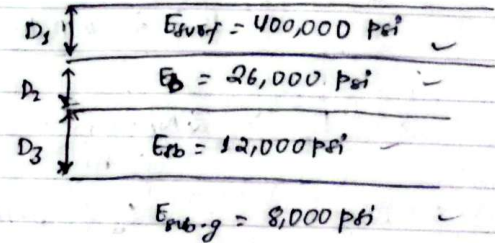 D₁ E_surf = 400,000 psi
D₂ E_B = 26,000 psi
D₃ E_sb = 12,000 psi
E_sub.g = 8,000 psi